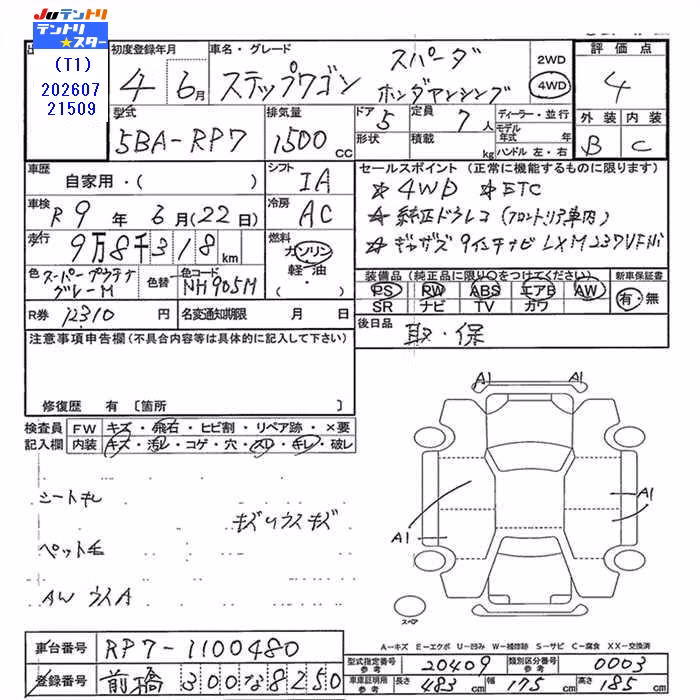 JUテントリ
テントリ★スター
(T1)
202607
21509
初度登録年月
4年 6月
車名・グレード
ステップワゴン スパーダ
ホンダアンシング
2WD
4WD
評価点
4
外装 内装
B C
型式
5BA-RP7
排気量
1500 cc
ドア
5
形状
定員
7人
積載
kg
ディーラー・並行
モデル年式 年
ハンドル 左・右
車歴
自家用・( )
シフト
IA
車検
R9年 6月(22日)
冷房
AC
走行
9万8千318km
燃料
ガソリン
軽油
・
色
スーパープラチナグレーM
色替
色コード
NH905M
R券 12310 円
名変通知期限 月 日
セールスポイント (正常に機能するものに限ります)
☆4WD ☆ETC
☆純正ドラレコ(フロントリア車内)
☆ギャザズ 9インチナビ LXM237VFNi
装備品 (純正品に限り○をつけてください)
PS PW ABS エアB AW
SR ナビ TV カワ
新車保証書
有・無
後日品
取・保
注意事項申告欄(不具合内容等は具体的に記入して下さい)
修復歴 有〔箇所 〕
検査員記入欄
FW キズ・飛石・ヒビ割・リペア跡・×要
内装 キズ・汚レ・コゲ・穴・スレ・キレ・破レ
シートキレ
キズ、ウスキズ
ペット毛
AW ウスA
A1 A1
A1
A1
スペア
A-キズ E-エクボ U-凹み W-補修跡 S-サビ C-腐食 XX-交換済
車台番号 RP7-1100480
登録番号 前橋 300 な 8250
型式指定番号 参考 20409
類別区分番号 参考 0003
車庫証明用 参考 長さ 483cm 幅 175cm 高さ 185cm